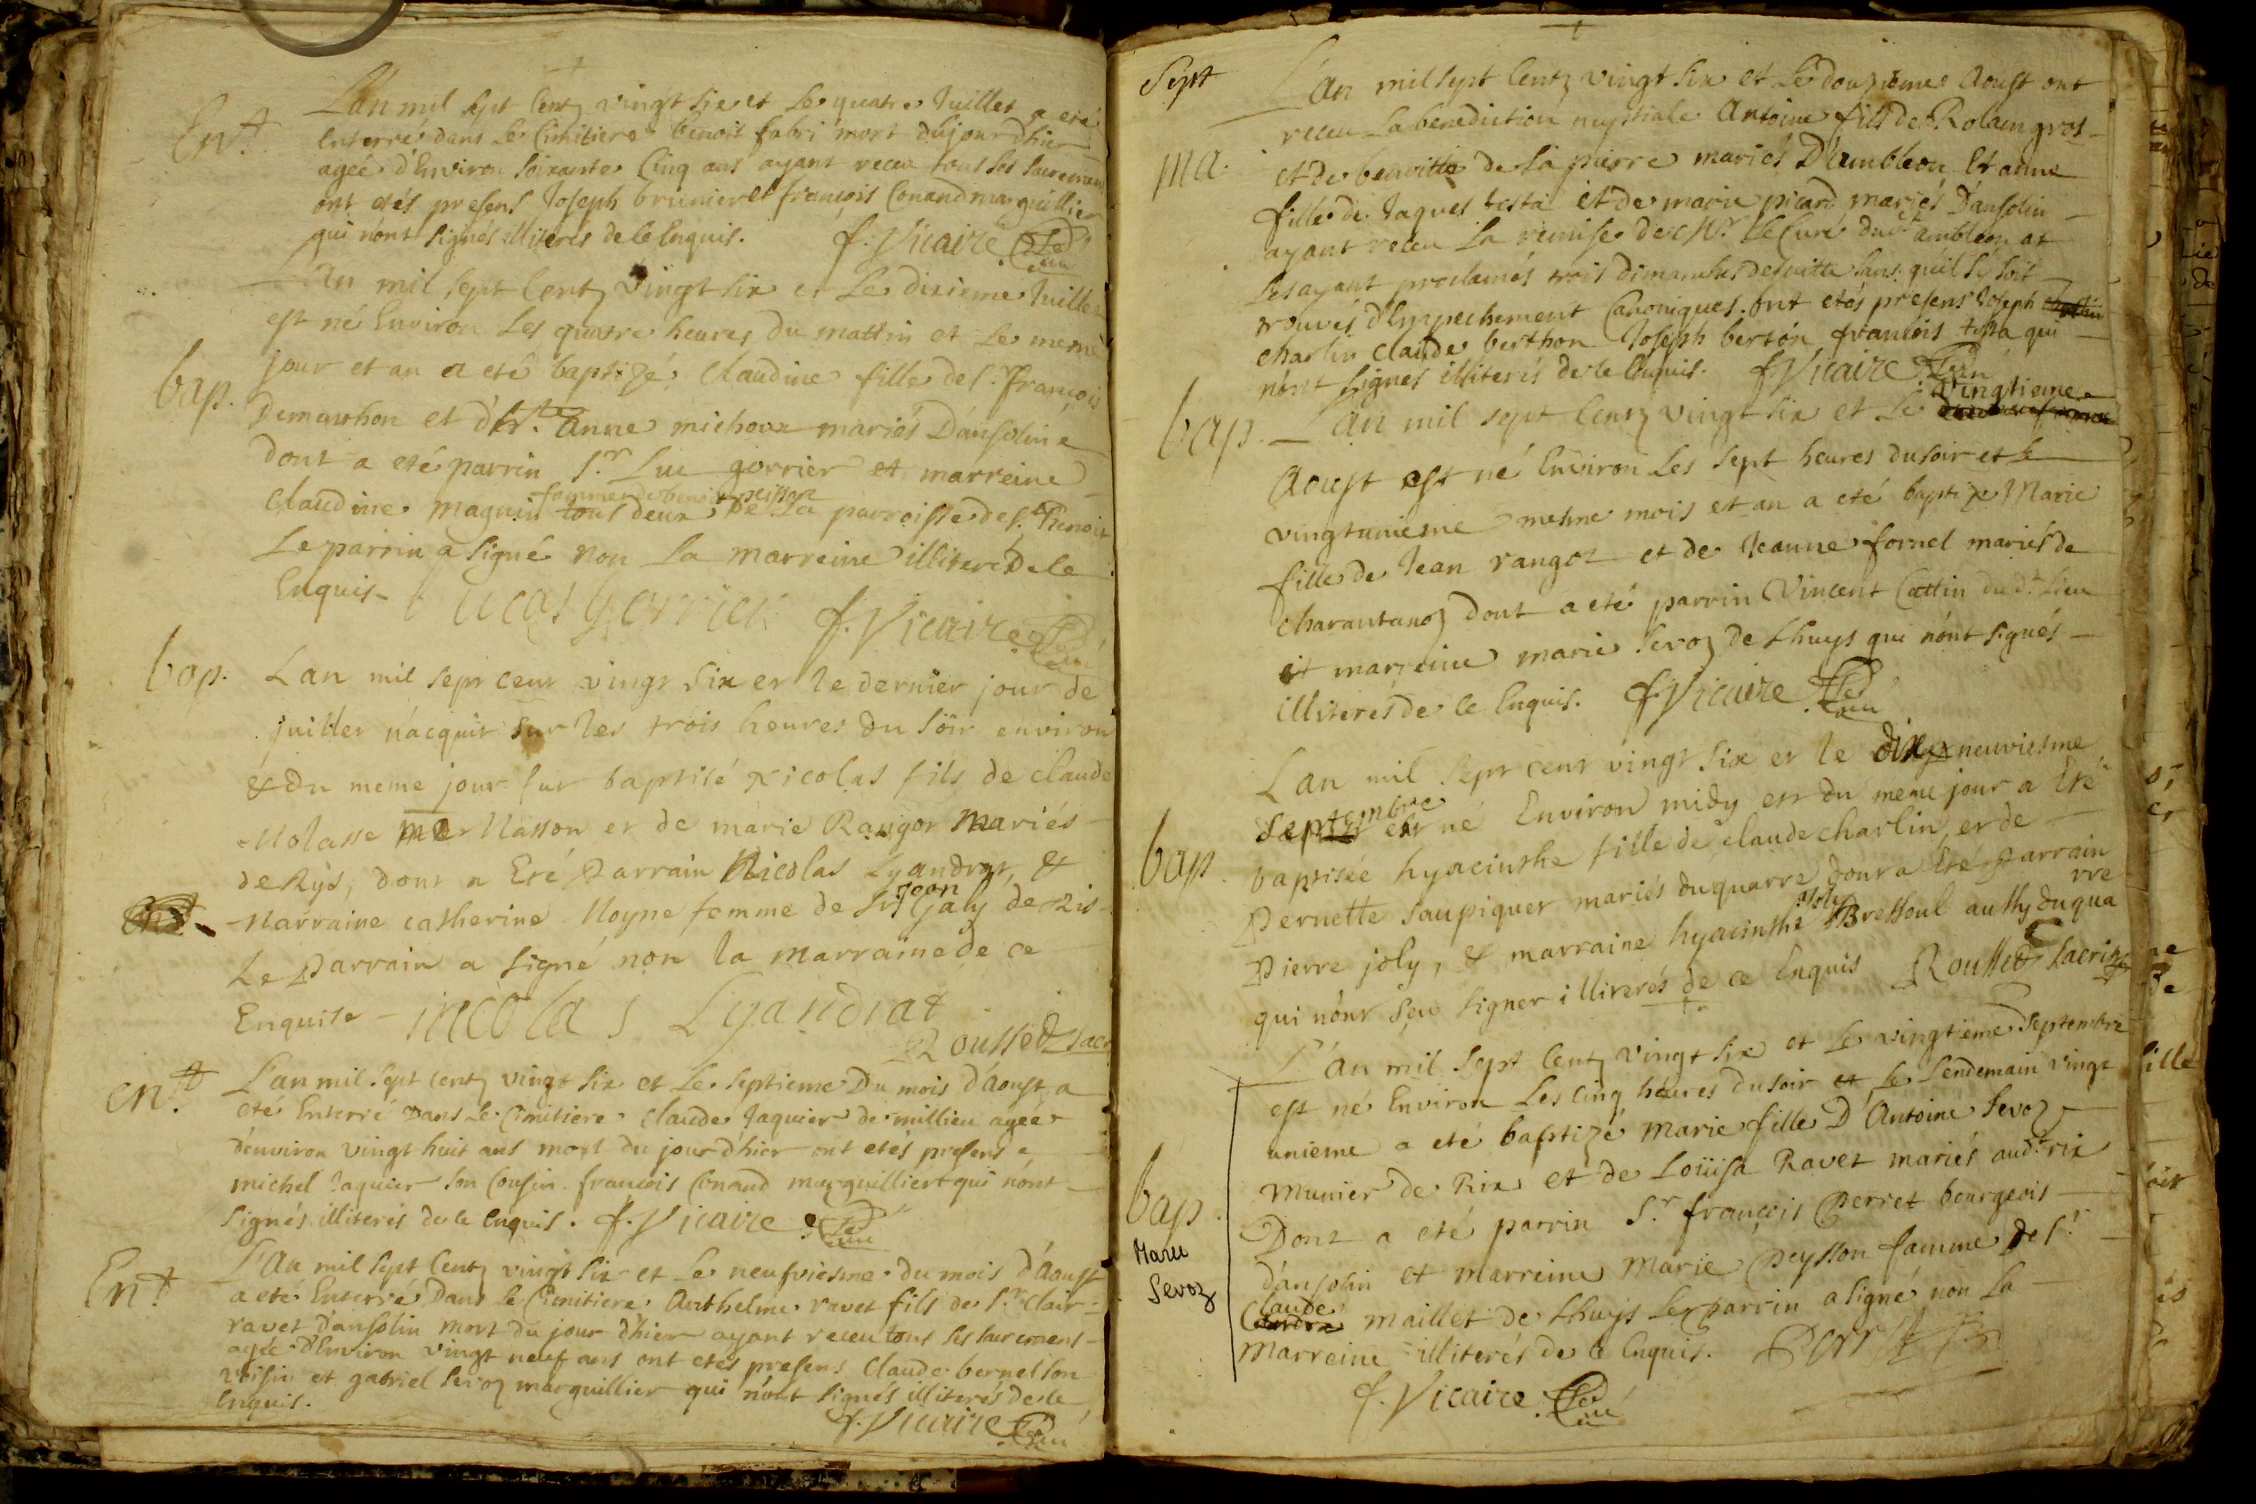 Ent
L'an mil sept centz vingt six et le quatre Juillet a eté
enterré dans le Cimitiere benoit fabri mort du jour d'hier
ageé d'Environ soixante Cinq ans ayant receu tous les sacremens
ont etés presens Joseph brunier et françois Conand marguillier
qui n'ont signés illiterés de ce Enquis. f. Vicaire
L'an mil sept centz vingt six et le dixieme Juillet
est né Environ les quatre heures du mattin et le meme
bap.
jour et an a eté baptizé Claudine fille de s.r françois
Demarthon et d'h.te anne michoux mariés D'ansolin
dont a eté parrin s.r Luc gorrier et marreine
femme de benoit peisson
claudine maguin tous deux de la parroisse de s.t Benoit
Le parrin a signé non la marreine illiteré de ce
Enquis. Lucas gorrier f. Vicaire
bap.
Lan mil sept cent vingt six et le dernier jour de
juillet nacquit sur les trois heures du soir environ
& du meme jour fut baptisé Nicolas fils de claude
Molasse Masson et de marie Rangot mariés
de Rys, dont a Eté Parrain Nicolas Lyandrat, &
Jean
Marraine catherine Moyne femme de Sr Galy de Ris
Le Parrain a signé non la marraine de ce
Enquise - nicolas Lyandrat
Rousset sacr
en.t
L'an mil sept centz vingt six et le septieme Du mois d'Aoust a
eté Enterré Dans le Cimitiere claude Jaquier de millieu ageé
d'environ vingt huit ans mort du jour d'hier ont etés presens
michel Jaquier son Cousin françois Conand marguillier qui n'ont
signés illiterés de ce enquis. f. Vicaire
Ent
L'An mil sept Centz vingt six et le neufviesme du mois d'Aoust
a eté Enterré Dans le Cimitiere Anthelme ravet fils de s.r Clair
ravet d'ansolin mort du jour d'hier ayant receu tous ses sacremens
ageé d'Environ vingt neuf ans ont etés presens Claude bernel son
voisin et gabriel sevoz marguillier qui n'ont signés illiterés de ce
Enquis.
f. Vicaire
Sept
L'an mil sept Centz vingt six et le douzieme Aoust ont
receu la benediction nuptiale Antoine fils de Rolain gros
ma.
et de benoitte de la pierre mariés D'ambleon Et anne
fille de Jaques testa et de marie picard mariés D'ansolin
ayant receu la remise de Mr. le Curé dud.t ambleon et
les ayant proclamés trois dimanches desuitte sans qu'il se soit
trouvés d'Empechement Canoniques. ont etés presens Joseph
charlin claude berthon Joseph berton françois testa qui
n'ont signes illiterés de ce Enquis. f. Vicaire
vingtieme
bap.
L'an mil sept centz vingt six et le
Aoust est né Environ les sept heures du soir et le
vingtuniesme mesme mois et an a eté baptizé Marie
fille de Jean rangot et de Jeanne fornel mariés de
charantanoz dont a eté parrin Vincent Cattin du d.t lieu
et marreine marie sevoz de thuys qui n'ont signés
illiterés de ce Enquis. f. Vicaire
Lan mil sept cent vingt six et le dix neuviesme
septembre est né Environ midy et du meme jour a Eté
bap.
baptisée hyacinthe fille de claude charlin, et de
Pernette Saupiquet mariés du quarre dont a Eté Parrain
Joly
Pierre joly, & marraine hyacinthe Bressoul au thy du qua
rre
qui n'ont sceu signer illiterés de ce Enquis Rousset sacriz
L'an mil sept Centz vingt six et le vingtieme Septembre
est né Environ les cinq heures du soir et le lendemain vingt
unieme a eté baptizé marie fille D'Antoine sevoz
bap.
Marie
Sevoz
munier de Rix et de Loüisa Ravet mariés aud.t rix
Dont a eté parrin S.r françois Perret bourgeois
d'ansolin et marreine Marie Peysson famme de S.r
Claude
maillet de thuys le parrin a signé non la
marreine illiterés de ce Enquis. Perret
f. Vicaire